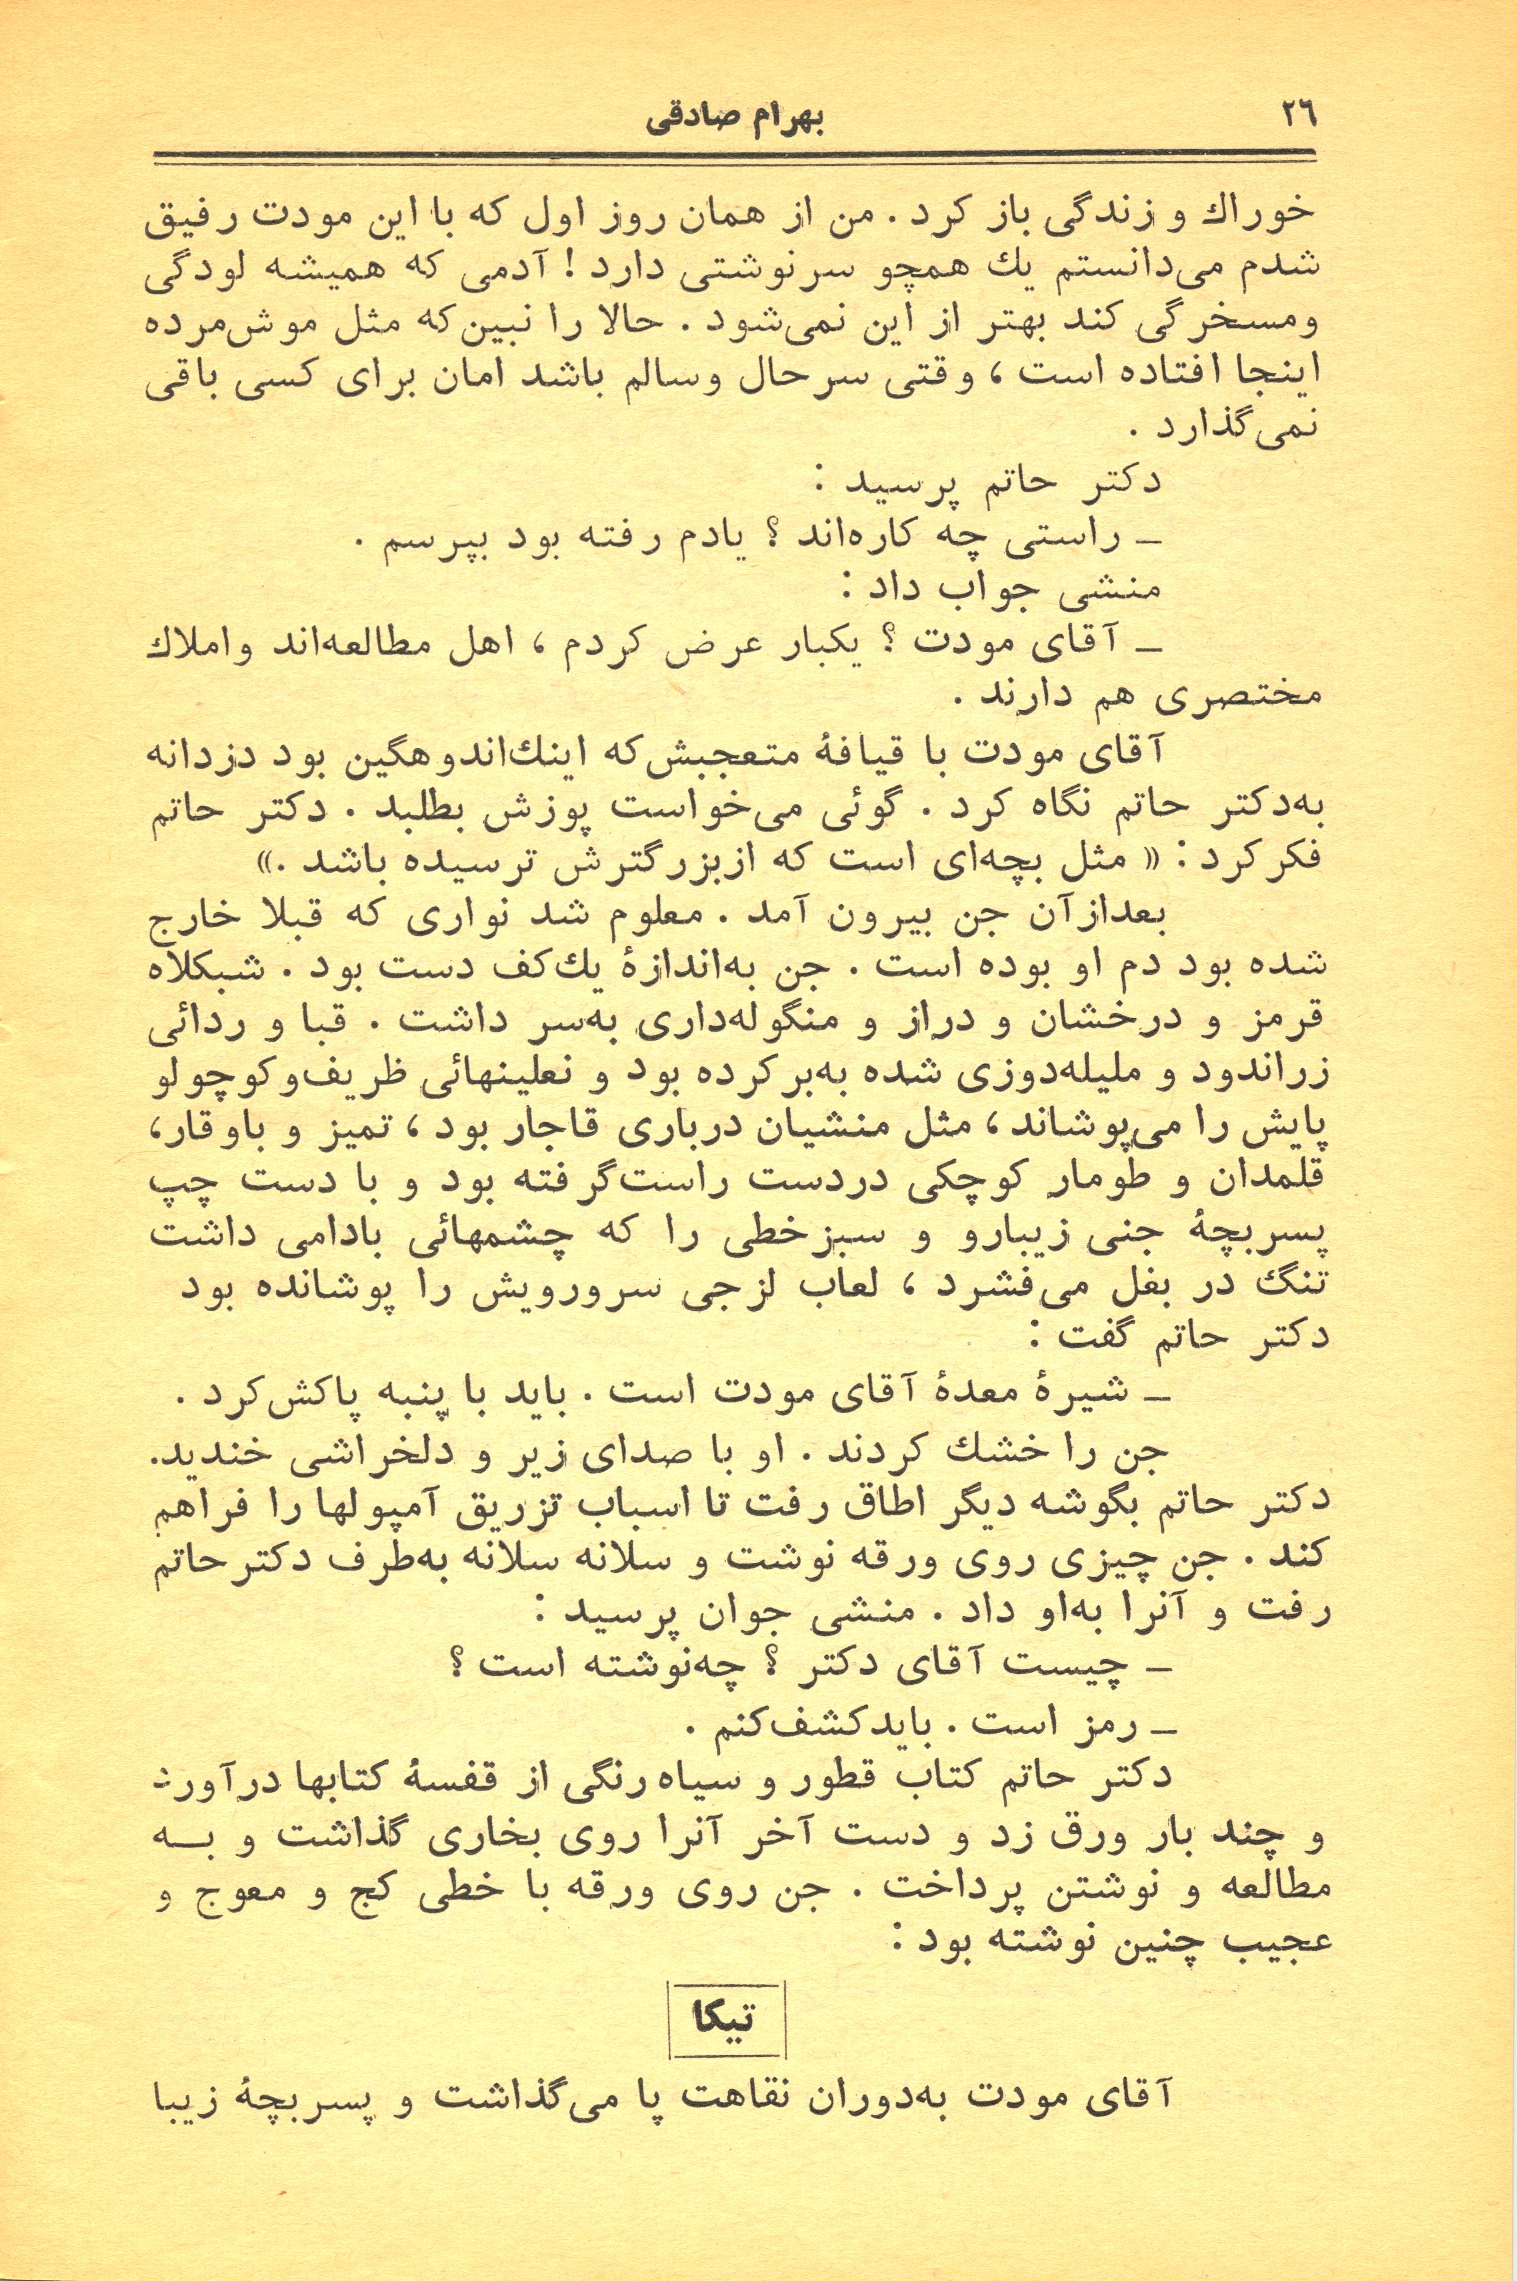 ۲۶
بهرام صادقی
خوراك و زندگی باز کرد . من از همان روز اول که با این مودت رفیق
شدم می‌دانستم يك همچو سرنوشتی دارد ! آدمی که همیشه لودگی
ومسخرگی کند بهتر از این نمی‌شود . حالا را نبین‌که مثل موش‌مرده
اینجا افتاده است ، وقتی سرحال وسالم باشد امان برای کسی باقی
نمی‌گذارد .
دکتر حاتم پرسید :
ــ راستی چه کاره‌اند ؟ یادم رفته بود بپرسم .
منشی جواب داد :
ــ آقای مودت ؟ یکبار عرض کردم ، اهل مطالعه‌اند واملاك
مختصری هم دارند .
آقای مودت با قیافهٔ متعجبش‌که اینك‌اندوهگین بود دزدانه
به‌دکتر حاتم نگاه کرد . گوئی می‌خواست پوزش بطلبد . دکتر حاتم
فکرکرد : « مثل بچه‌ای است که ازبزرگترش ترسیده باشد .»
بعدازآن جن بیرون آمد . معلوم شد نواری که قبلا خارج
شده بود دم او بوده است . جن به‌اندازهٔ يك‌کف دست بود . شبکلاه
قرمز و درخشان و دراز و منگوله‌داری به‌سر داشت . قبا و ردائی
زراندود و ملیله‌دوزی شده به‌برکرده بود و نعلینهائی ظریف‌وکوچولو
پایش را می‌پوشاند ، مثل منشیان درباری قاجار بود ، تمیز و باوقار،
قلمدان و طومار کوچکی دردست راست‌گرفته بود و با دست چپ
پسربچهٔ جنی زیبارو و سبزخطی را که چشمهائی بادامی داشت
تنگ در بغل می‌فشرد ، لعاب لزجی سرورویش را پوشانده بود
دکتر حاتم گفت :
ــ شیرهٔ معدهٔ آقای مودت است . باید با پنبه پاکش‌کرد .
جن را خشك کردند . او با صدای زیر و دلخراشی خندید.
دکتر حاتم بگوشه دیگر اطاق رفت تا اسباب تزریق آمپولها را فراهم
کند . جن چیزی روی ورقه نوشت و سلانه سلانه به‌طرف دکترحاتم
رفت و آنرا به‌او داد . منشی جوان پرسید :
ــ چیست آقای دکتر ؟ چه‌نوشته است ؟
ــ رمز است . بایدکشف‌کنم .
دکتر حاتم کتاب قطور و سیاه رنگی از قفسهٔ کتابها درآورد
و چند بار ورق زد و دست آخر آنرا روی بخاری گذاشت و بــه
مطالعه و نوشتن پرداخت . جن روی ورقه با خطی کج و معوج و
عجیب چنین نوشته بود :
تیکا
آقای مودت به‌دوران نقاهت پا می‌گذاشت و پسربچهٔ زیبا